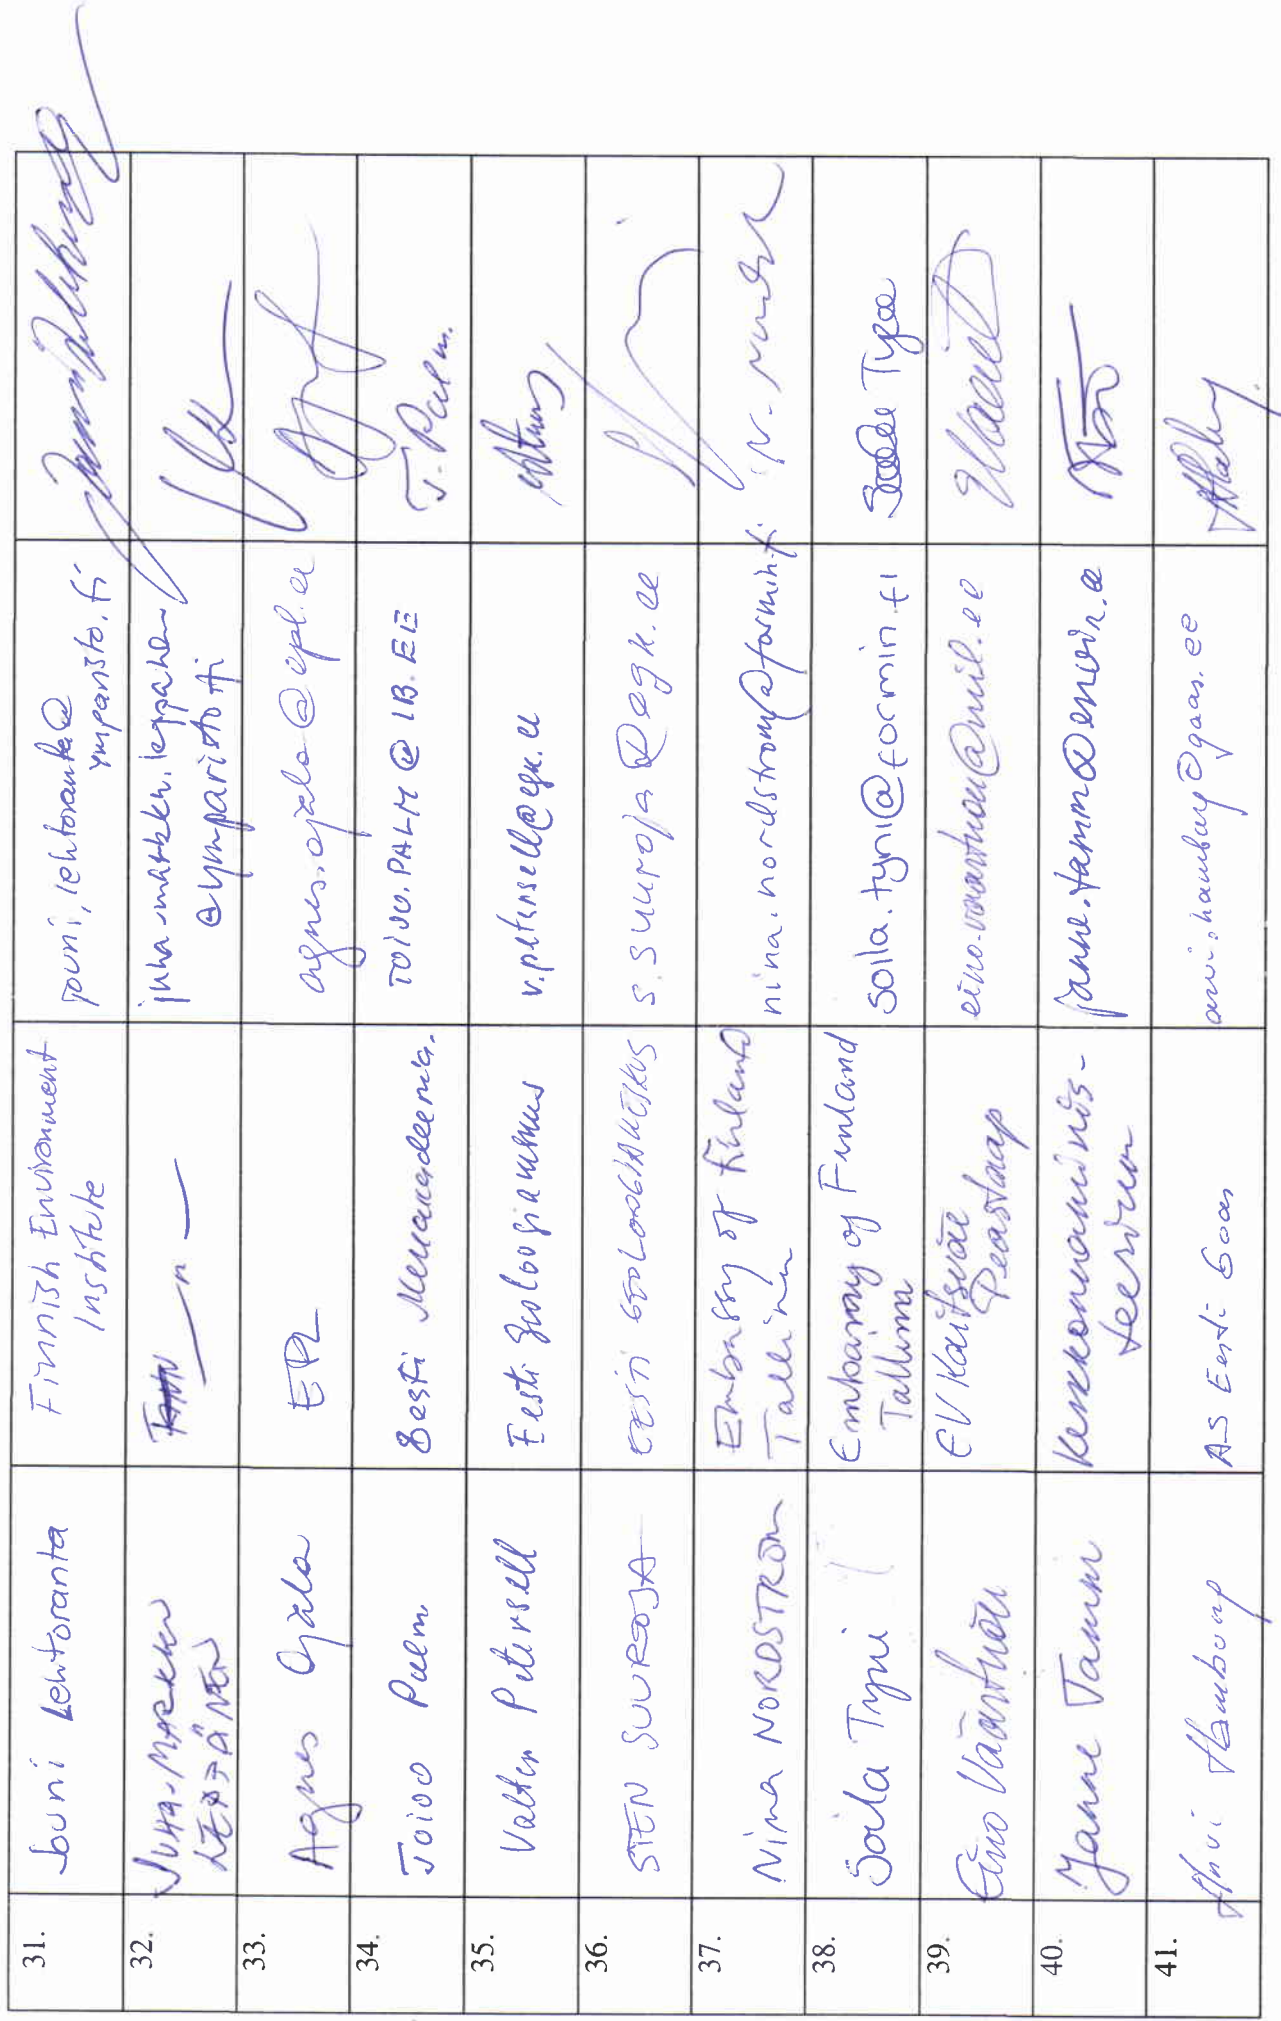 31.
Jouni Lehtoranta
Finnish Environment
Institute
jouni.lehtoranta@
ymparisto.fi
32.
JUHA-MARKKU
LEPPÄNEN
— n —
juha-markku.leppanen
@ymparisto.fi
33.
Agnes Ojala
EPL
agnes.ojala@epl.ee
34.
Toivo Palm
Eesti Mereakadeemia.
TOIVO.PALM@LB.EE
T. Palm.
35.
Valter Petersell
Eesti Geoloogiakeskus
v.petersell@egk.ee
36.
STEN SUUROJA
EESTI GEOLOOGIAKESKUS
s.suuroja@egk.ee
37.
Nina NORDSTRÖM
Embassy of Finland
Tallinn
nina.nordstrom@formin.fi
38.
Soila Tyni
Embassy of Finland
Tallinna
soila.tyni@formin.fi
39.
Eino Väärtnõu
EV Kaitseväe
Peastaap
eino.vaartnou@mil.ee
40.
Janne Tamm
Keskkonnaminis-
teerium
janne.tamm@envir.ee
41.
Arvi Hamburg
AS Eesti Gaas
arvi.hamburg@gaas.ee